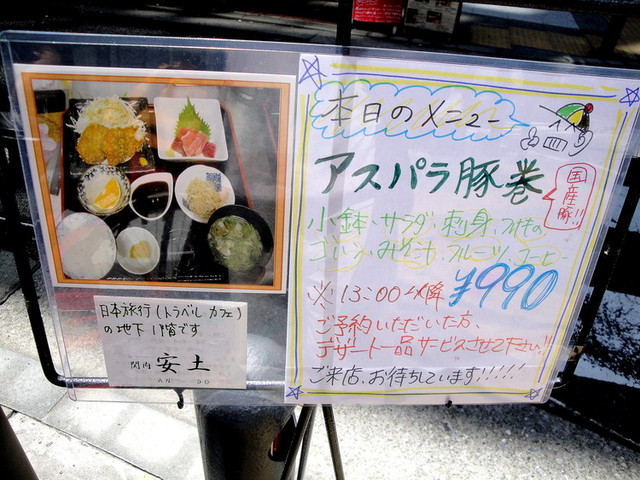 本日のメニュー
アスパラ豚巻
国産豚!!
小鉢、サラダ、刺身、つけもの
ごはん、みそ汁、フルーツ、コーヒー
¥990
※13:00以降
ご予約いただいた方、
デザート一品サービスさせて下さい!!
ご来店、お待ちしています!!!!!
日本旅行(トラベル カフェ)
の地下1階です
関内 安土